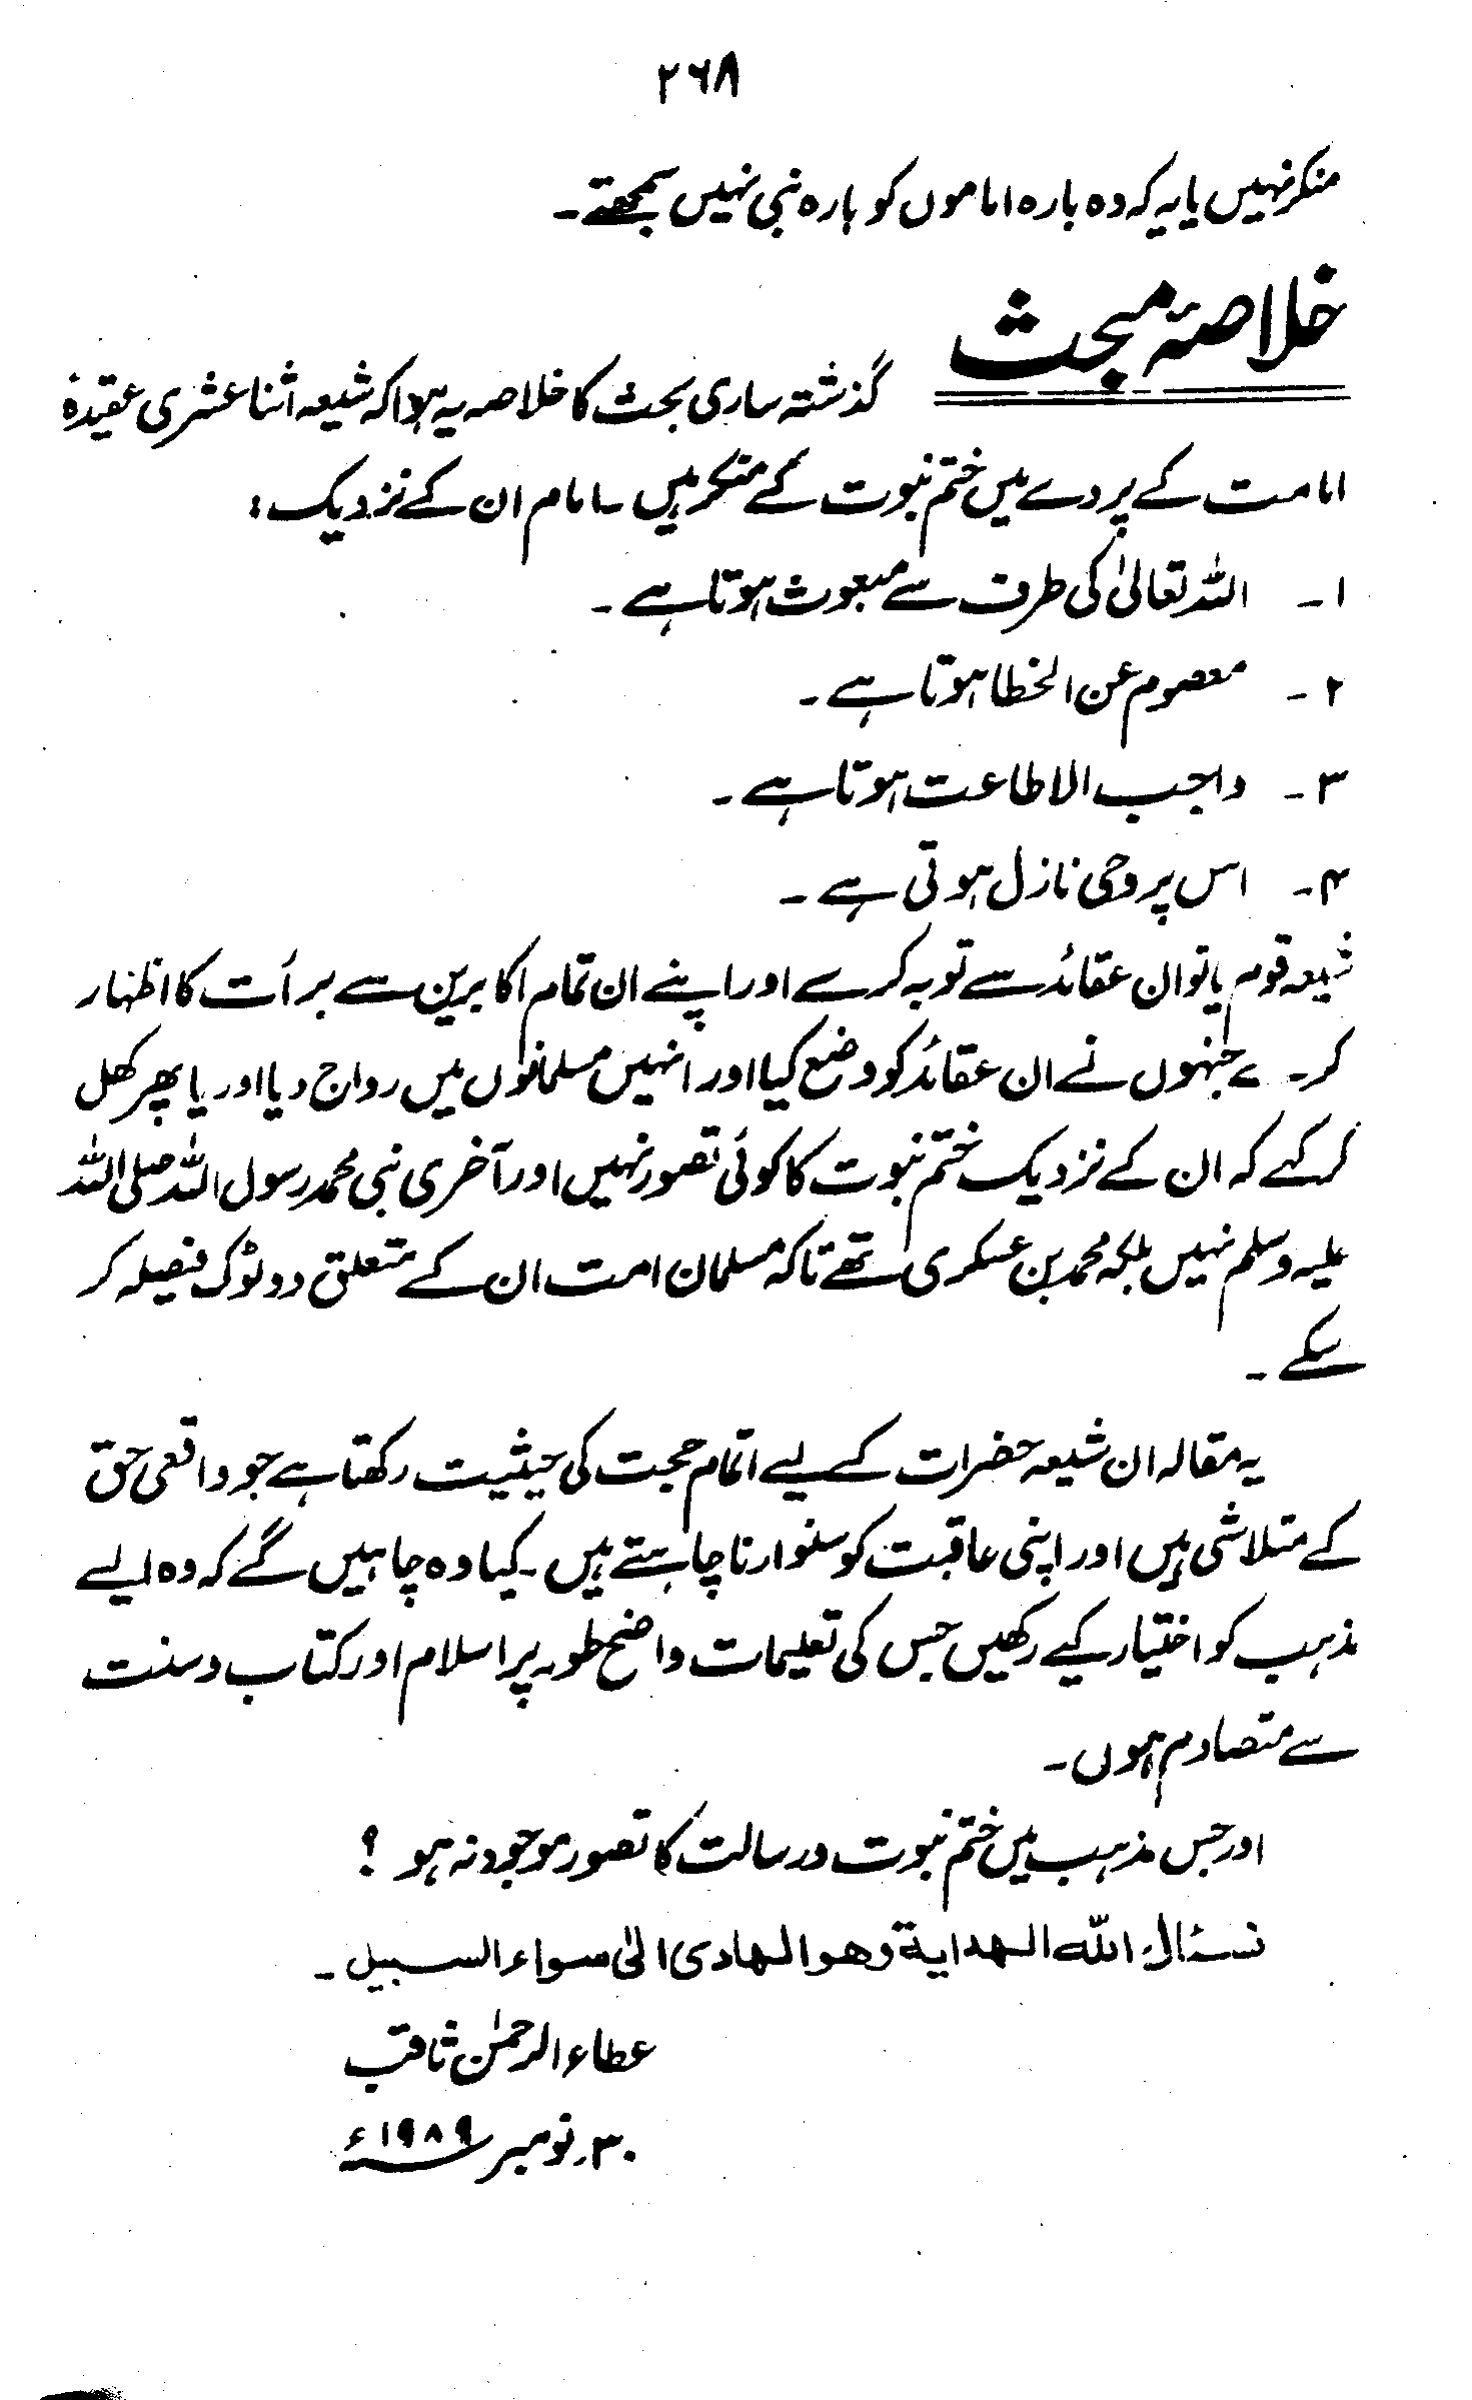 ۲۶۸
منکر نہیں یا یہ کہ وہ بارہ اماموں کو بارہ نبی نہیں سمجھتے۔
خلاصۂ مبحث
گذشتہ ساری بحث کا خلاصہ یہ ہوا کہ شیعہ اثنا عشری عقیدۂ
امامت کے پردے میں ختم نبوت کے منکر ہیں۔ امام ان کے نزدیک :
۱۔ اللہ تعالیٰ کی طرف سے مبعوث ہوتا ہے۔
۲۔ معصوم عن الخطا ہوتا ہے۔
۳۔ واجب الاطاعت ہوتا ہے۔
۴۔ اس پر وحی نازل ہوتی ہے۔
شیعہ قوم یا تو ان عقائد سے توبہ کرے اور اپنے ان تمام اکابرین سے برأت کا اظہار
کرے جنہوں نے ان عقائد کو وضع کیا اور انہیں مسلمانوں میں رواج دیا اور یا پھر کھل
کر کہے کہ ان کے نزدیک ختم نبوت کا کوئی تصور نہیں اور آخری نبی محمد رسول اللہ صلی اللہ
علیہ وسلم نہیں بلکہ محمد بن عسکری تھے تاکہ مسلمان امت ان کے متعلق دو ٹوک فیصلہ کر
سکے۔
یہ مقالہ ان شیعہ حضرات کے لیے اتمام حجت کی حیثیت رکھتا ہے جو واقعی حق
کے متلاشی ہیں اور اپنی عاقبت کو سنوارنا چاہتے ہیں۔ کیا وہ چاہیں گے کہ وہ ایسے
مذہب کو اختیار کیے رکھیں جس کی تعلیمات واضح طور پر اسلام اور کتاب و سنت
سے متصادم ہوں۔
اور جس مذہب میں ختم نبوت و رسالت کا تصور موجود نہ ہو ؟
نسئال اللہ الھدایة وھو الھادی الیٰ سواء السبیل۔
عطاء الرحمٰن ثاقب
۳۰ نومبر ۱۹۸۹ء